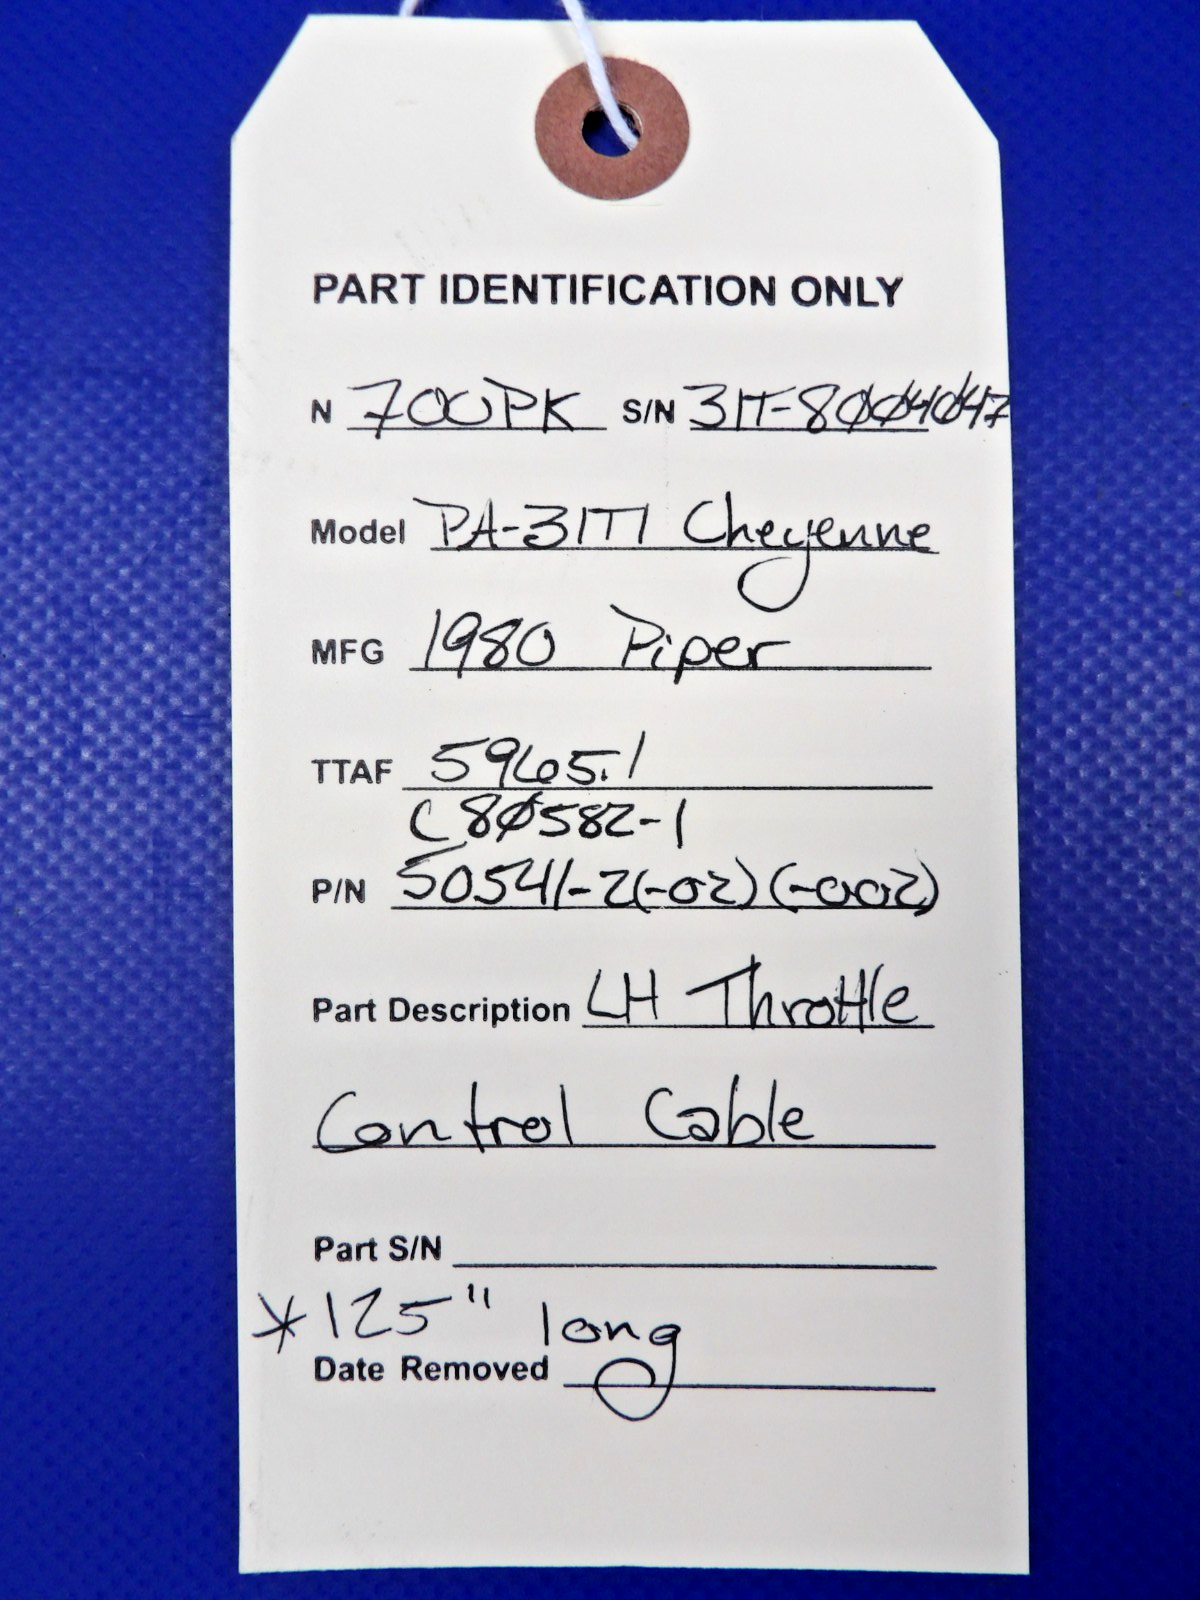 PART IDENTIFICATION ONLY
N 700PK S/N 31T-8004047
Model PA-31T1 Cheyenne
MFG 1980 Piper
TTAF 5965.1
C80582-1
P/N 50541-2(-02)(-002)
Part Description LH Throttle
Control Cable
Part S/N
*125" long
Date Removed